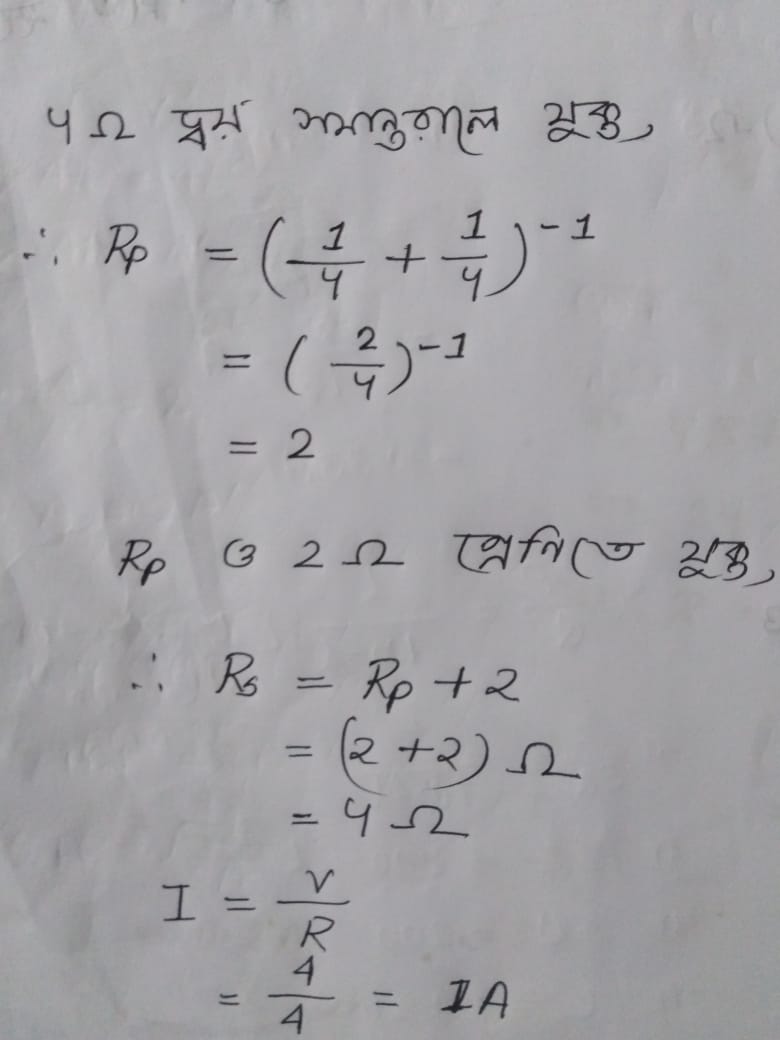 4 Ω দ্বয় সমান্তরালে যুক্ত,
∴ Rp = (1/4 + 1/4)^-1
= (2/4)^-1
= 2
Rp ও 2 Ω শ্রেনিতে যুক্ত,
∴ Rs = Rp + 2
= (2 + 2) Ω
= 4 Ω
I = V/R
= 4/4 = 1A